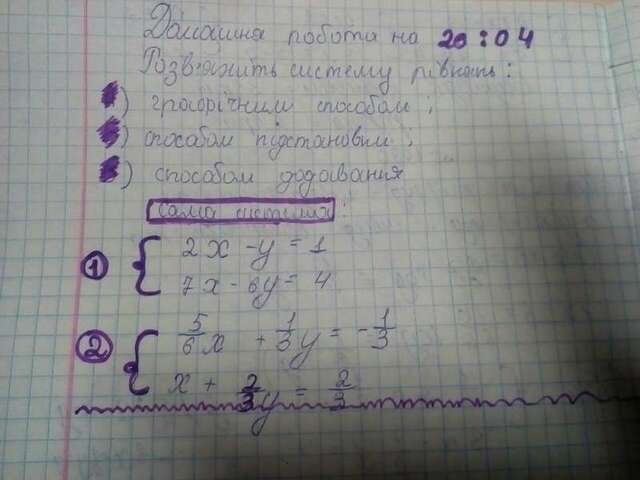 Домашня робота на 20:04
Розв'яжіть систему рівнянь:
) графічним способом;
) способом підстановки;
) способом додавання
сама система:
1 { 2x - y = 1
7x - 6y = 4
2 { 5/6 x + 1/3 y = - 1/3
x + 2/3 y = 2/3